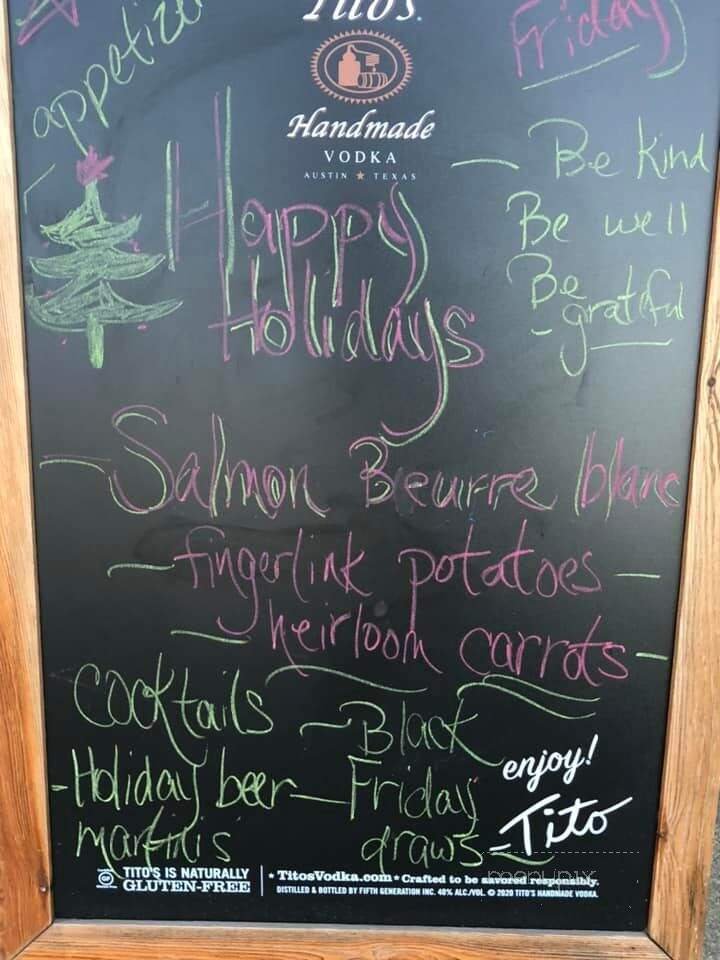 Tito's
appetize
Friday
Handmade
VODKA
AUSTIN ★ TEXAS
— Be kind
Be well
Be
- grateful
Happy
Holidays
- Salmon Beurre blanc
- fingerlink potatoes -
- heirloom carrots -
Cocktails
- Holiday beer
martinis
~ Black
Friday
draws -
enjoy!
Tito
GF
TITO'S IS NATURALLY
GLUTEN-FREE
* TitosVodka.com * Crafted to be savored responsibly.
DISTILLED & BOTTLED BY FIFTH GENERATION INC. 40% ALC./VOL. © 2020 TITO'S HANDMADE VODKA.
menupix